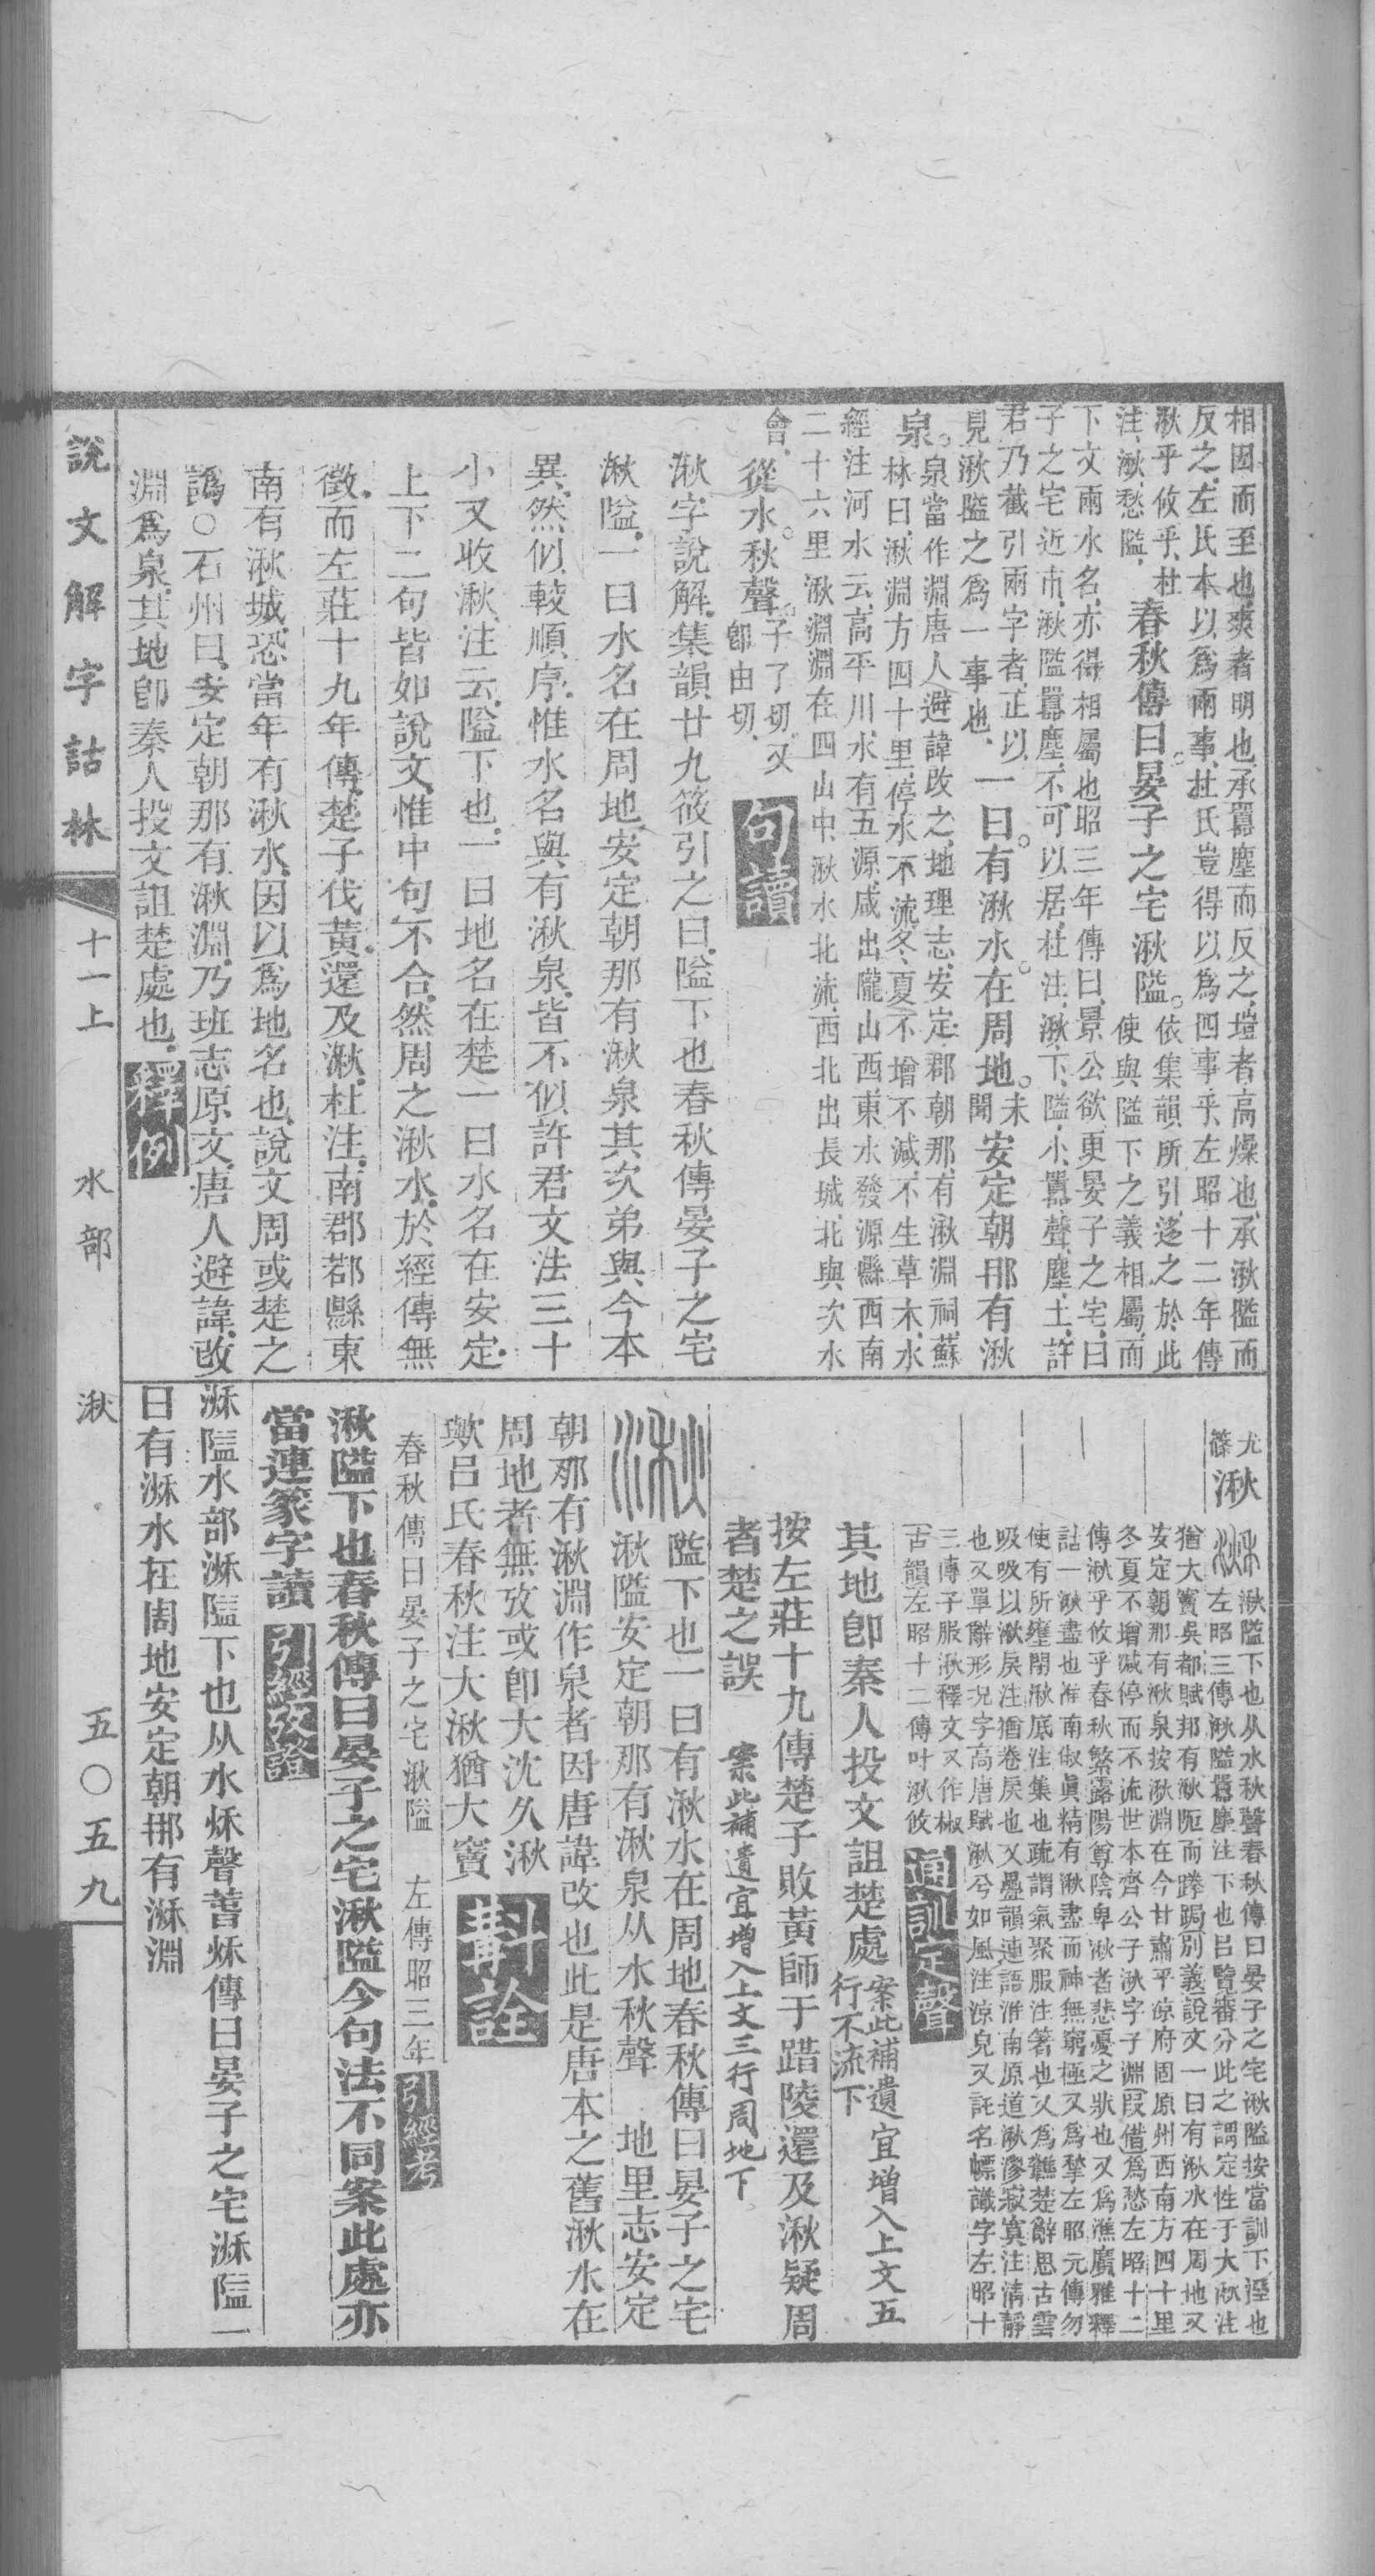 相因而至也爽者明也承囂塵而反之塏者高燥也承湫隘而
反之左氏本以爲兩事杜氏豈得以爲四事乎左昭十二年傳
湫乎攸乎杜
注湫愁隘
春秋傳曰晏子之宅湫隘
依集韻所引迻之於此
使與隘下之義相屬而
下文兩水名亦得相屬也昭三年傳曰景公欲更晏子之宅曰
子之宅近市湫隘囂塵不可以居杜注湫下隘小囂聲塵土許
君乃截引兩字者正以
見湫隘之爲一事也
一曰有湫水在周地
未
聞
安定朝那有湫
泉
泉當作淵唐人避諱改之地理志安定郡朝那有湫淵祠蘇
林曰湫淵方四十里停水不流冬夏不增不減不生草木水
經注河水云高平川水有五源咸出隴山西東水發源縣西南
二十六里湫淵淵在四山中湫水北流西北出長城北與次水
會
從水秋聲
子了切又
卽由切
句讀
湫字說解集韻廿九筱引之曰隘下也春秋傳晏子之宅
湫隘一曰水名在周地安定朝那有湫泉其次弟與今本
異然似較順序惟水名與有湫泉皆不似許君文法三十
小又收湫注云隘下也一曰地名在楚一曰水名在安定
上下二句皆如說文惟中句不合然周之湫水於經傳無
徵而左莊十九年傳楚子伐黃還及湫杜注南郡鄀縣東
南有湫城恐當年有湫水因以爲地名也說文周或楚之
譌○石州曰安定朝那有湫淵乃班志原文唐人避諱改
淵爲泉其地卽秦人投文詛楚處也
釋例
尤
篠
湫
湫隘下也从水秋聲春秋傳曰晏子之宅湫隘按當訓下溼也
左昭三傳湫隘囂塵注下也呂覽審分此之謂定性于大湫注
猶大竇吳都賦邦有湫阨而踡跼別義說文一曰有湫水在周地又
安定朝那有湫泉按湫淵在今甘肅平涼府固原州西南方四十里
冬夏不增減停而不流世本齊公子湫字子淵叚借爲愁左昭十二
傳湫乎攸乎春秋繁露陽尊陰卑湫者悲憂之狀也又爲潐廣雅釋
詁一湫盡也淮南俶眞精有湫盡而神無窮極又爲揫左昭元傳勿
使有所壅閉湫底注集也疏謂氣聚服注箸也又爲龝楚辭思古雲
吸吸以湫戾注猶卷戾也又疊韻連語淮南原道湫漻寂寞注淸靜
也又單辭形況字高唐賦湫兮如風注涼皃又託名幖識字左昭十
三傳子服湫釋文又作椒
古韻左昭十二傳叶湫攸
通訓定聲
其地卽秦人投文詛楚處
案此補遺宜增入上文五
行不流下
按左莊十九傳楚子敗黃師于踖陵還及湫疑周
者楚之誤
案此補遺宜增入上文三行周地下
隘下也一曰有湫水在周地春秋傳曰晏子之宅
湫隘安定朝那有湫泉从水秋聲　地里志安定
朝那有湫淵作泉者因唐諱改也此是唐本之舊湫水在
周地者無攷或卽大沈久湫
歟呂氏春秋注大湫猶大竇
斠詮
春秋傳曰晏子之宅湫隘　左傳昭三年
引經考
湫隘下也春秋傳曰晏子之宅湫隘今句法不同案此處亦
當連篆字讀
引經攷證
湫隘水部湫隘下也从水秌聲萅秌傳曰晏子之宅湫隘一
曰有湫水在周地安定朝那有湫淵
說文解字詁林
十一上
水部
湫
五〇五九